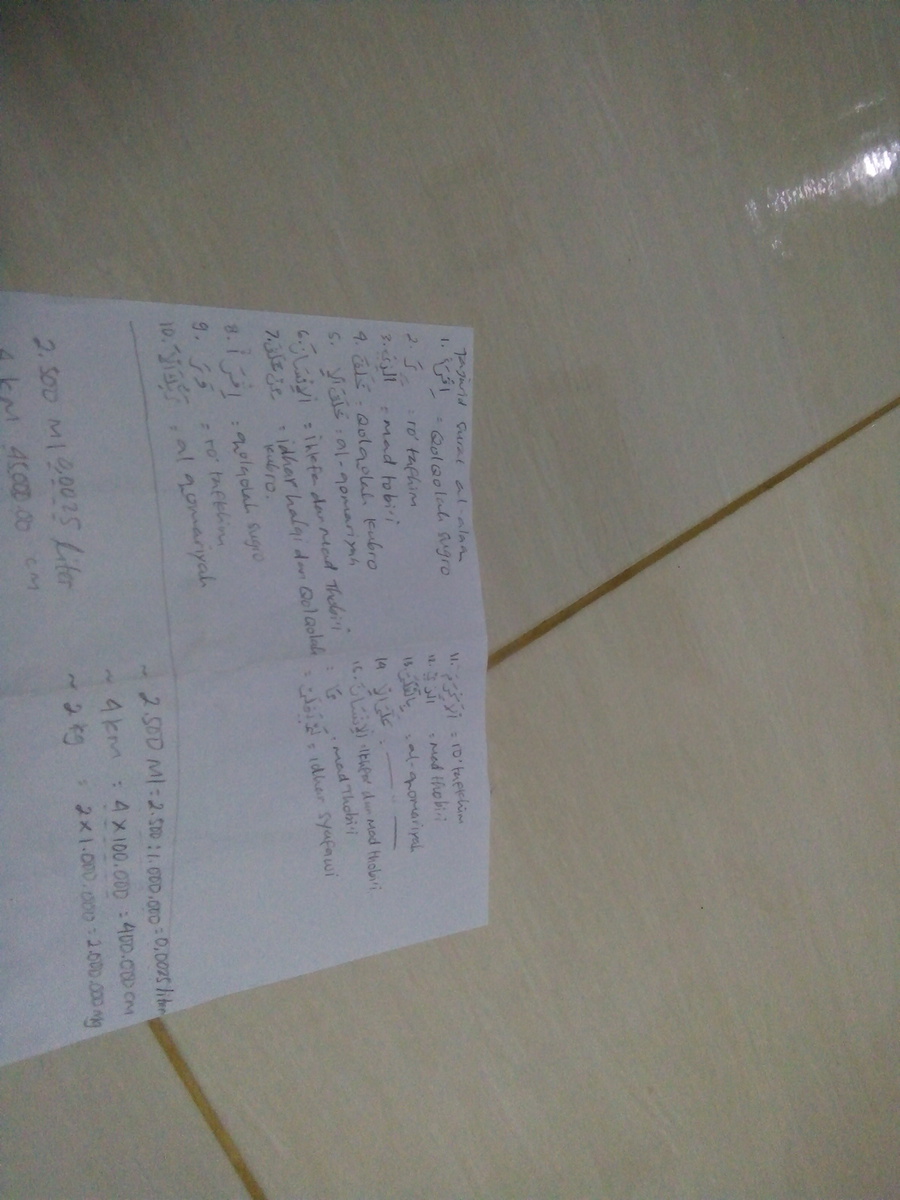 Tajwid surat al alaq
1. اِقْرَأْ = QolQolah sugro
2. رَ = ro' tafkhim
3. الَّذِيْ = mad tobi'i
4. خَلَقَ = Qolqolah kubro
5. خَلَقَ الْاِ = al-qomariyah
6. الْاِنْسَانَ = ikhfa dan mad Thobi'i
7. مِنْ عَلَقٍ = idhar halqi dan Qolqolah kubro.
8. اِقْرَأْ = qolqolah sugro
9. وَرَ = ro' tafkhim
10. رَبُّكَ الْاَ = al qomariyah
11. الْاَكْرَمُ = ro' tafkhim
12. الَّذِيْ = mad thobi'i
13. بِالْقَلَمِ = al-qomariyah
14. عَلَّمَ الْاِ =
15. الْاِنْسَانَ = ikhfa' dan mad thobi'i
مَا = mad Thobi'i
لَمْ يَعْلَمْ = idhar syafawi
2.500 Ml 0,0025 liter
4 km cm
~ 2.500 Ml = 2.500 : 1.000.000 = 0,0025 liter
~ 4 km : 4 x 100.000 = 400.000 cm
~ 2 kg : 2 x 1.000.000 = 2.000.000 mg